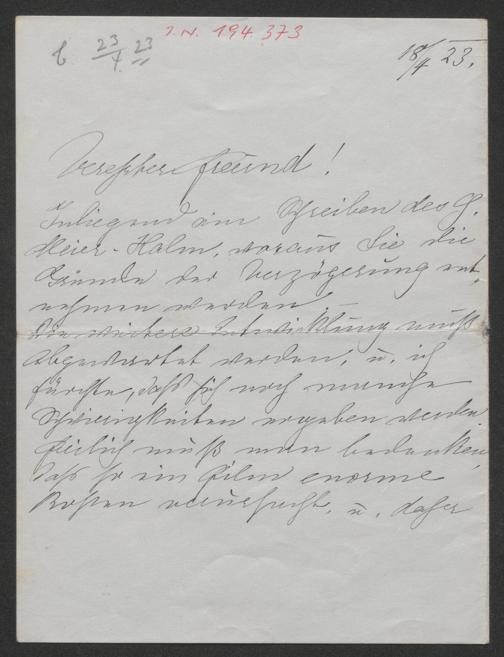 b 23/4 23
I.N. 194.373
18/4 23.
Verehrter Freund!
Inliegend ein Schreiben des H.
Meier-Halm, woraus Sie die
Gründe der Verzögerung ent-
nehmen werden! —
Die weitere Entwicklung muß
abgewartet werden, u. ich
fürchte, daß sich noch manche
Schwierigkeiten ergeben werden.
Freilich muß man bedenken,
daß so ein Film enorme
Kosten verursacht, u. daher